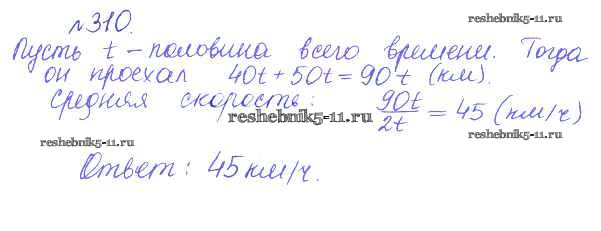 №310. reshebnik5-11.ru
Пусть t – половина всего времени. Тогда
он проехал 40t + 50t = 90t (км).
Средняя скорость: 90t/2t = 45 (км/ч)
reshebnik5-11.ru
reshebnik5-11.ru
Ответ: 45 км/ч.
reshebnik5-11.ru